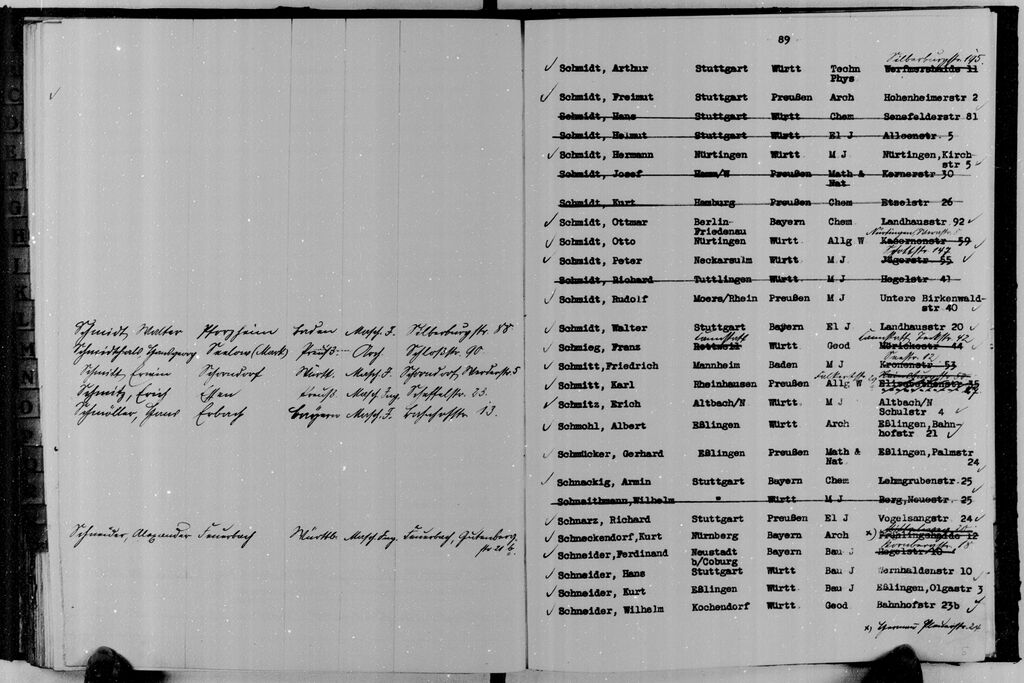 Schmidt, Walter Pforzheim Baden Masch. I. Silberburgstr. 88
Schmidthals Seelow (Mark) Preuß. Arch Schloßstr. 90
Schmitt, Erwin Schorndorf Württ. Masch. I. Schorndorf, Werderstr. 5
Schmitz, Erich Essen Preuß. Masch. Ing. Scheffelstr. 23.
Schmöller, Hans Erbach Bayern Masch. I. Bahnhofstr. 13.
Schneider, Alexander Feuerbach Württb. Masch. Ing. Feuerbach, Gutenberg
str. 21
89
Silberburgstr. 145.
✓ Schmidt, Arthur Stuttgart Württ Techn Werfmershalde 11
Phys
✓ Schmidt, Freimut Stuttgart Preußen Arch Hohenheimerstr 2
Schmidt, Hans Stuttgart Württ Chem Senefelderstr 81
Schmidt, Helmut Stuttgart Württ El J Alleenstr 5
✓ Schmidt, Hermann Nürtingen Württ M J Nürtingen, Kirch-
str 5 ✓
Schmidt, Josef Hamm/W Preußen Math & Kernerstr 30
Nat
Schmidt, Kurt Hamburg Preußen Chem Etzelstr 26
✓ Schmidt, Ottmar Berlin- Bayern Chem Landhausstr 92 ✓
Friedenau Nürtingen,
✓ Schmidt, Otto Nürtingen Württ Allg W Kasernenstr 59
147
✓ Schmidt, Peter Neckarsulm Württ M J Jägerstr 55
Schmidt, Richard Tuttlingen Württ M J Hegelstr 41
✓ Schmidt, Rudolf Moers/Rhein Preußen M J Untere Birkenwald-
str 40 ✓
✓ Schmidt, Walter Stuttgart Bayern El J Landhausstr 20 ✓
Cannstatt Cannstatt, Teckstr. 42
✓ Schmieg, Franz Rottweil Württ Geod Mörickestr 44
Seestr. 12.
✓ Schmitt, Friedrich Mannheim Baden M J Kronenstr 53
✓ Schmitt, Karl Rheinhausen Preußen Allg W Elisabethenstr 35
✓ Schmitz, Erich Altbach/N Württ M J Altbach/N
Schulstr 4 ✓
✓ Schmohl, Albert Eßlingen Württ Arch Eßlingen, Bahn-
hofstr 21 ✓
✓ Schmücker, Gerhard Eßlingen Preußen Math & Eßlingen, Palmstr
Nat 24
✓ Schnackig, Armin Stuttgart Bayern Chem Lehmgrubenstr 25
Schnaithmann, Wilhelm " Württ M J Berg, Neuestr 25
✓ Schnarz, Richard Stuttgart Preußen El J Vogelsangstr 24 ✓
✓ Schneckendorf, Kurt Nürnberg Bayern Arch x) Frühlingshalde 12
Kornbergstr. 18
✓ Schneider, Ferdinand Neustadt Bayern Bau J Hegelstr 10
b/Coburg
✓ Schneider, Hans Stuttgart Württ Bau J Wernhaldenstr 10
✓ Schneider, Kurt Eßlingen Württ Bau J Eßlingen, Olgastr 3
✓ Schneider, Wilhelm Kochendorf Württ Geod Bahnhofstr 23b ✓
x) 24